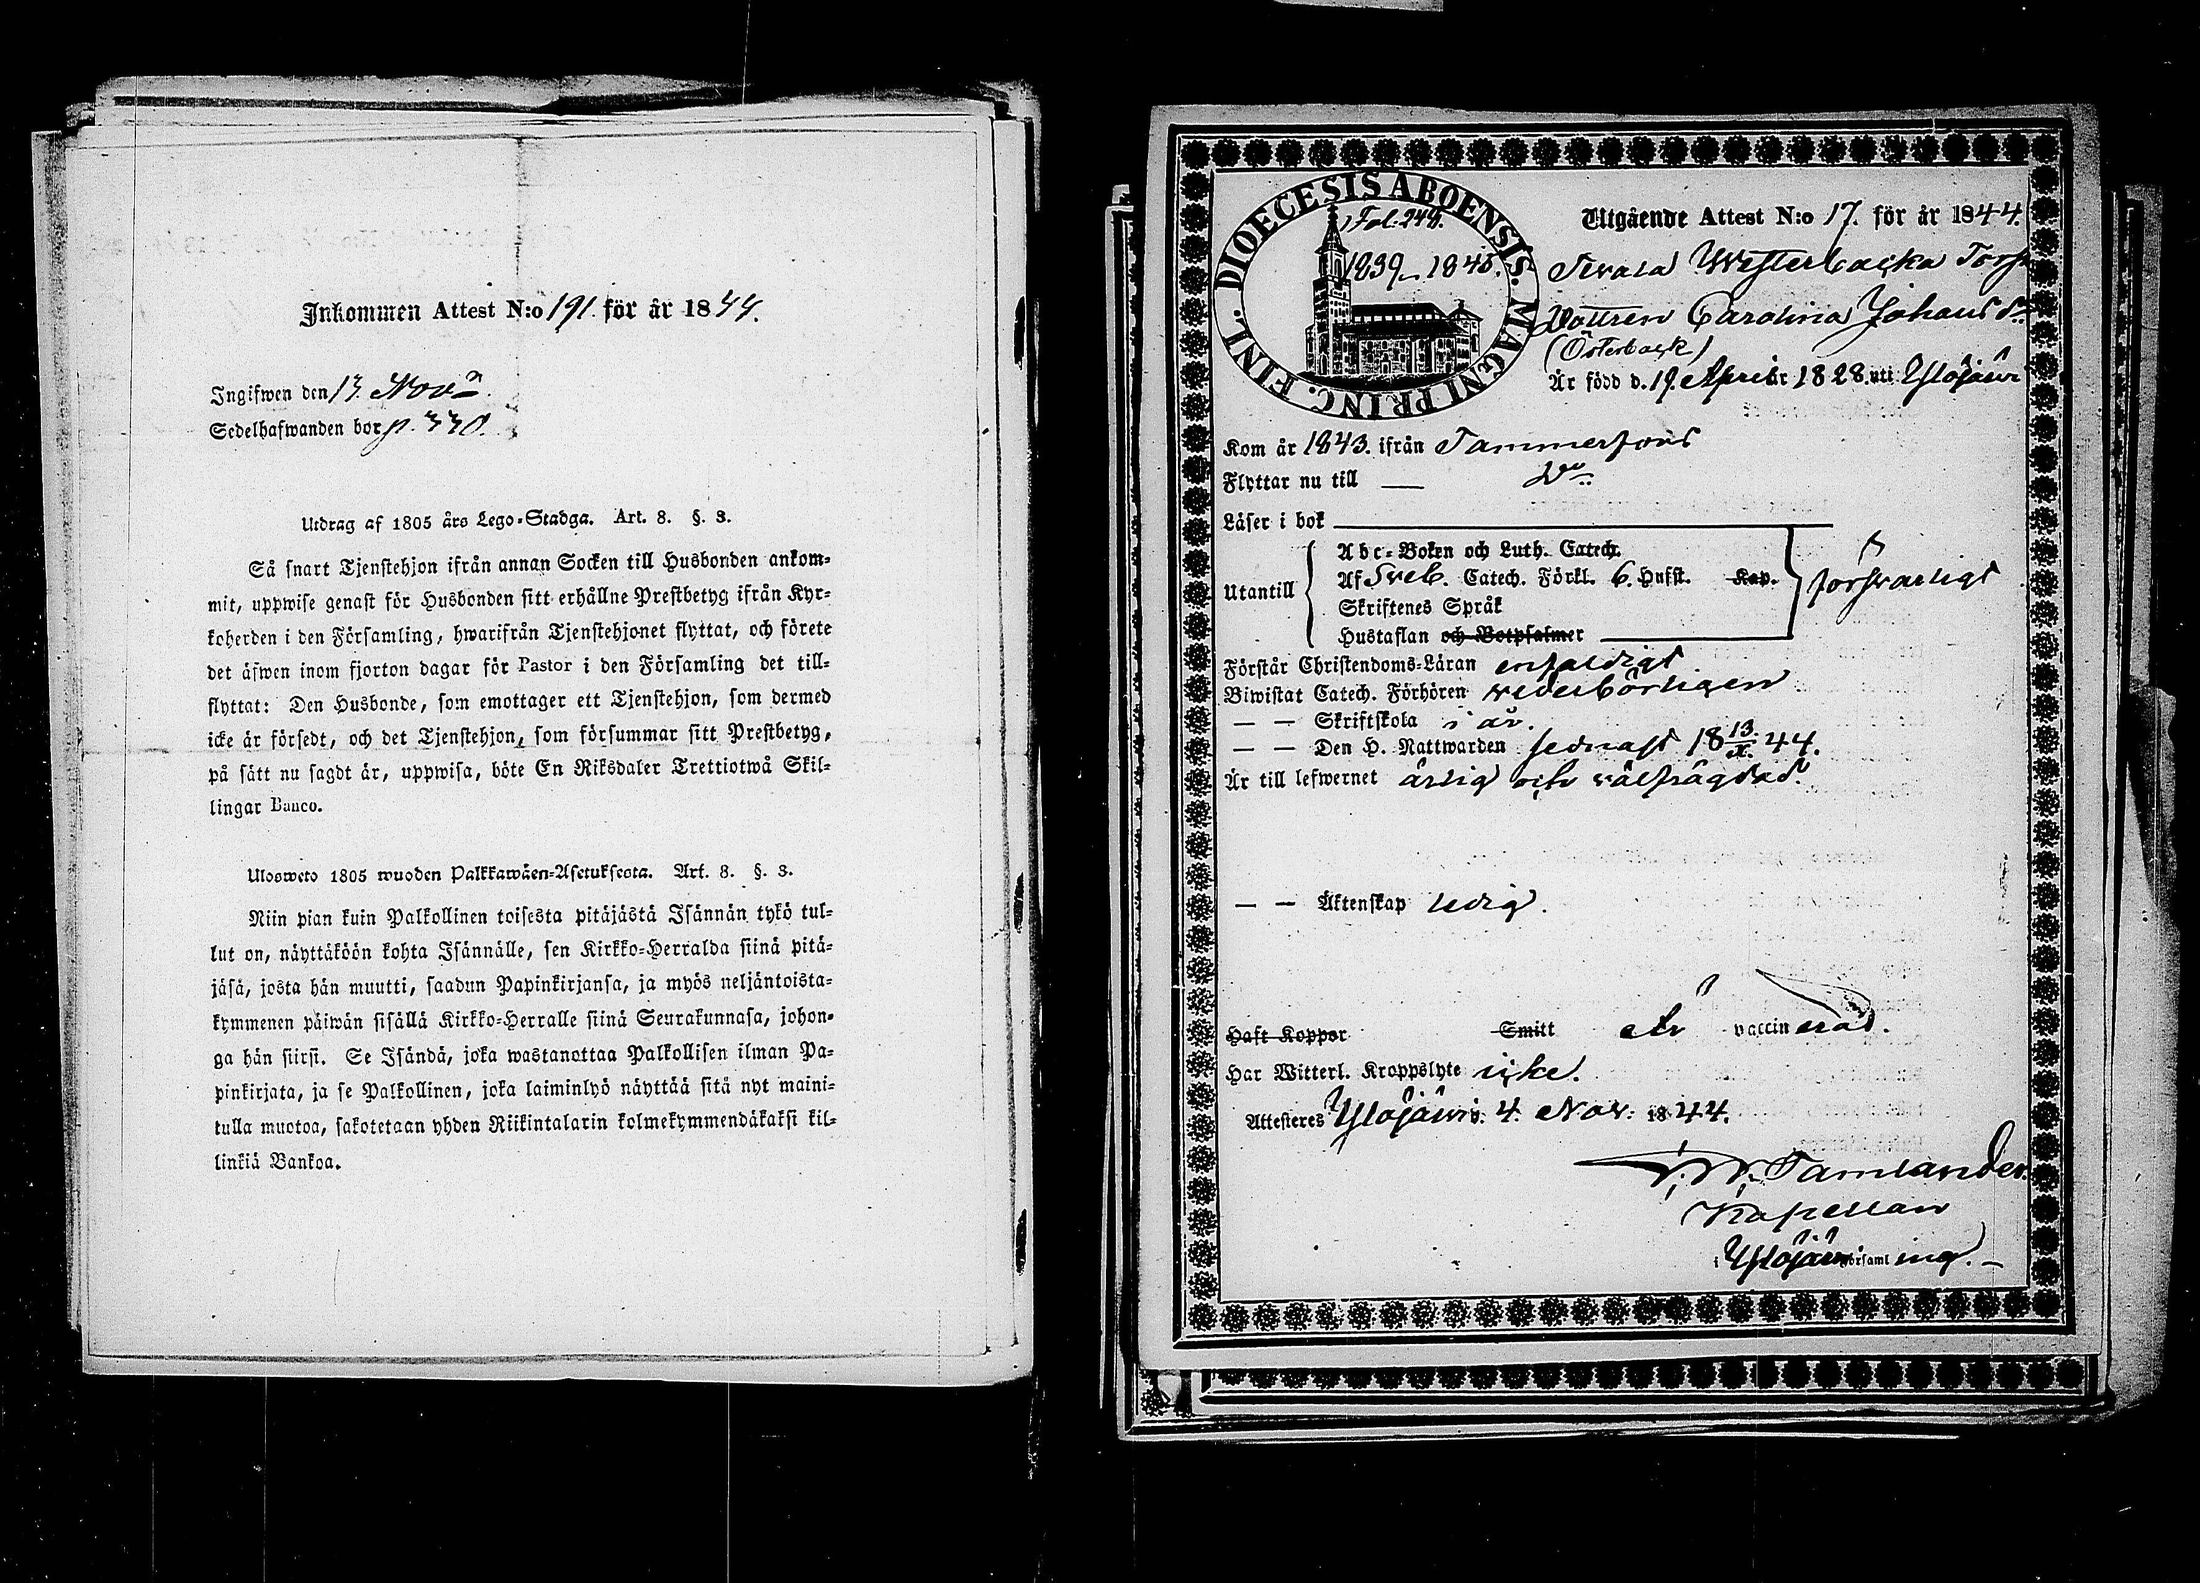 Inkommen Attest N:o 191. för år 1844.
Ingifwen den 13 Nov.
Sedelhafwanden bor p. 330.
Utdrag af 1805 års Lego-Stadga. Art. 8. §. 3.
Så snart Tjenstehjon ifrån annan Socken till Husbonden ankom-
mit, uppwise genast för Husbonden sitt erhållne Prestbetyg ifrån Kyr-
koherden i den Församling, hwarifrån Tjenstehjonet flyttat, och förete
det äfwen inom fjorton dagar för Pastor i den Församling det till-
flyttat: Den Husbonde, som emottager ett Tjenstehjon, som dermed
icke är försedt, och det Tjenstehjon, som försummar sitt Prestbetyg,
på sätt nu sagdt är, uppwisa, böte En Riksdaler Trettiotwå Skil-
lingar Banco.
Ulosweto 1805 wuoden Palkkawäen-Asetuksesta. Art. 8. §. 3.
Niin pian kuin Palkollinen toisesta pitäjästä Isännän tykö tul-
lut on, näyttäköön kohta Isännälle, sen Kirkko-Herralda siinä pitä-
jäsä, josta hän muutti, saadun Papinkirjansa, ja myös neljäntoista-
kymmenen päiwän sisällä Kirkko-Herralle siinä Seurakunnasa, johon-
ga hän siirsi. Se Isändä, joka wastanottaa Palkollisen ilman Pa-
pinkirjata, ja se Palkollinen, joka laiminlyö näyttää sitä nyt maini-
tulla muotoa, sakotetaan yhden Riikintalarin kolmekymmendäkaksi kil-
linkiä Bankoa.
DIOECESIS ABOENSIS. MAGNI PRINC. FINL.
Fol. 249.
1839-1845.
Utgående Attest N:o 17. för år 1844.
Westerbacka Torp
Dottren Carolina Johansd:r
(Österback)
Är född d. 19. April år 1828. uti Ylöjärvi
Kom år 1843. ifrån Tammerfors
Flyttar nu till — D:o
Läser i bok
Utantill
Abc-Boken och Luth. Catech.
Af Sveb. Catech. Förkl. 6. Hufst. Kap.
Skriftenes Språk
Hustaflan och Botpsalmer
försvarligt
Förstår Christendoms-Läran enfaldigt
Biwistat Catech. Förhören vederbörligen
— — Skriftskola i år.
— — Den H. Nattwarden sednast 18 13/X 44.
Är till lefwernet ärlig och välfrägdad.
— — Äktenskap ledig.
Haft Koppor Smitt Är vaccinerad.
Har Witterl. Kroppslyte icke.
Attesteres Ylöjärvi d. 4. Nov. 1844.
Tamlander.
Kapellan
i Ylöjärvi församling.